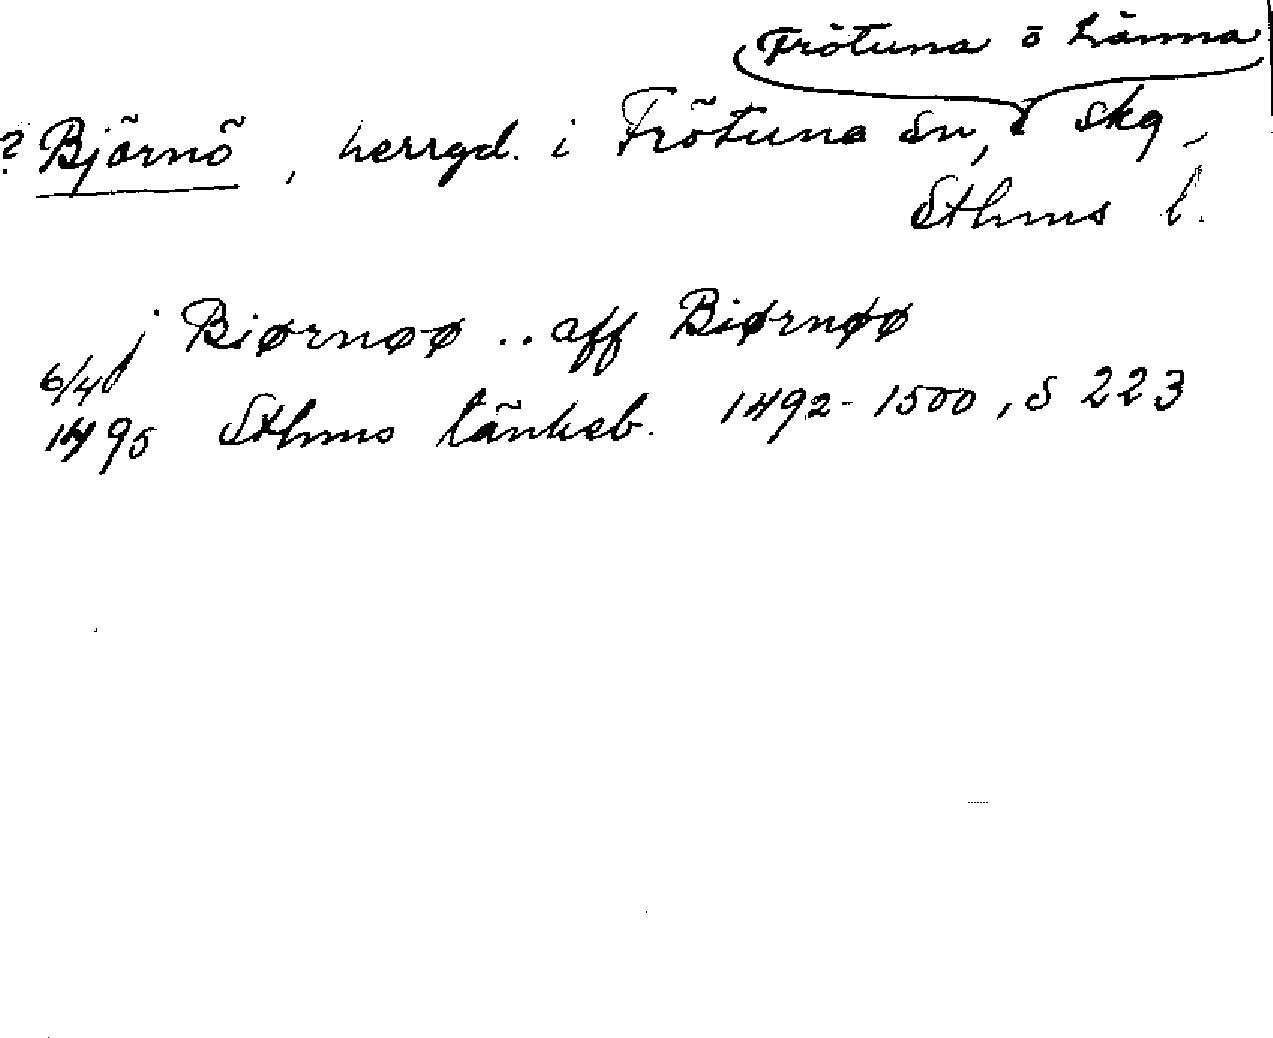 Frötuna o Länna
? Björnö, herrgd. i Frötuna sn, skg,
Sthms l.
j Biørnøø .. aff Biørnøø
6/4
1495 Sthms tänkeb. 1492-1500, s 223